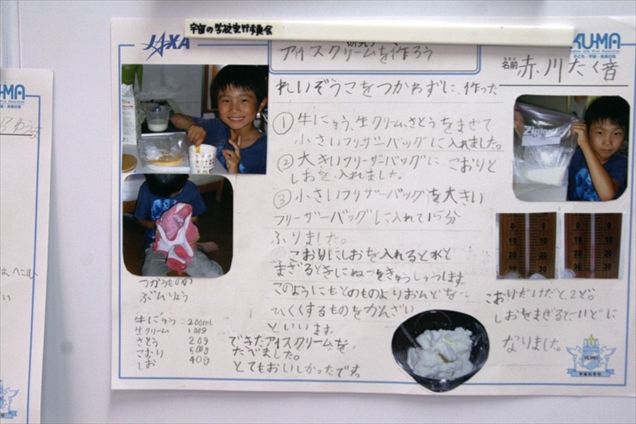 宇宙の学校実行委員会
JAXA
KU-MA
アイスクリームを作ろう
名前 赤川たく音
れいぞうこをつかわずに、作った
① 牛にゅう、生クリーム、さとうをまぜて
小さいフリーザーバッグに入れました。
② 大きいフリーザーバッグに こおりと
しおを入れました。
③ 小さいフリーザーバッグを大きい
フリーザーバッグに入れて15分
ふりました。
こおりにしおを入れると水と
まざるときにねつをきゅうしゅうします
このようにもとのものよりおんどを
ひくくするものをかんざい
といいます。
できたアイスクリームを
たべました。
とてもおいしかったです。
つかうものの
ぶんりょう
牛にゅう:200mL
生クリーム 100g
さとう 20g
こおり 500g
しお 40g
Ziploc
こおりだけだと、2ど。
しおをまぜると-11どに
なりました。